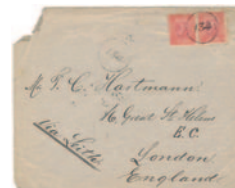 Mr F. C. Hartmann
16 Great St Helens
E. C.
via Leith
London
England